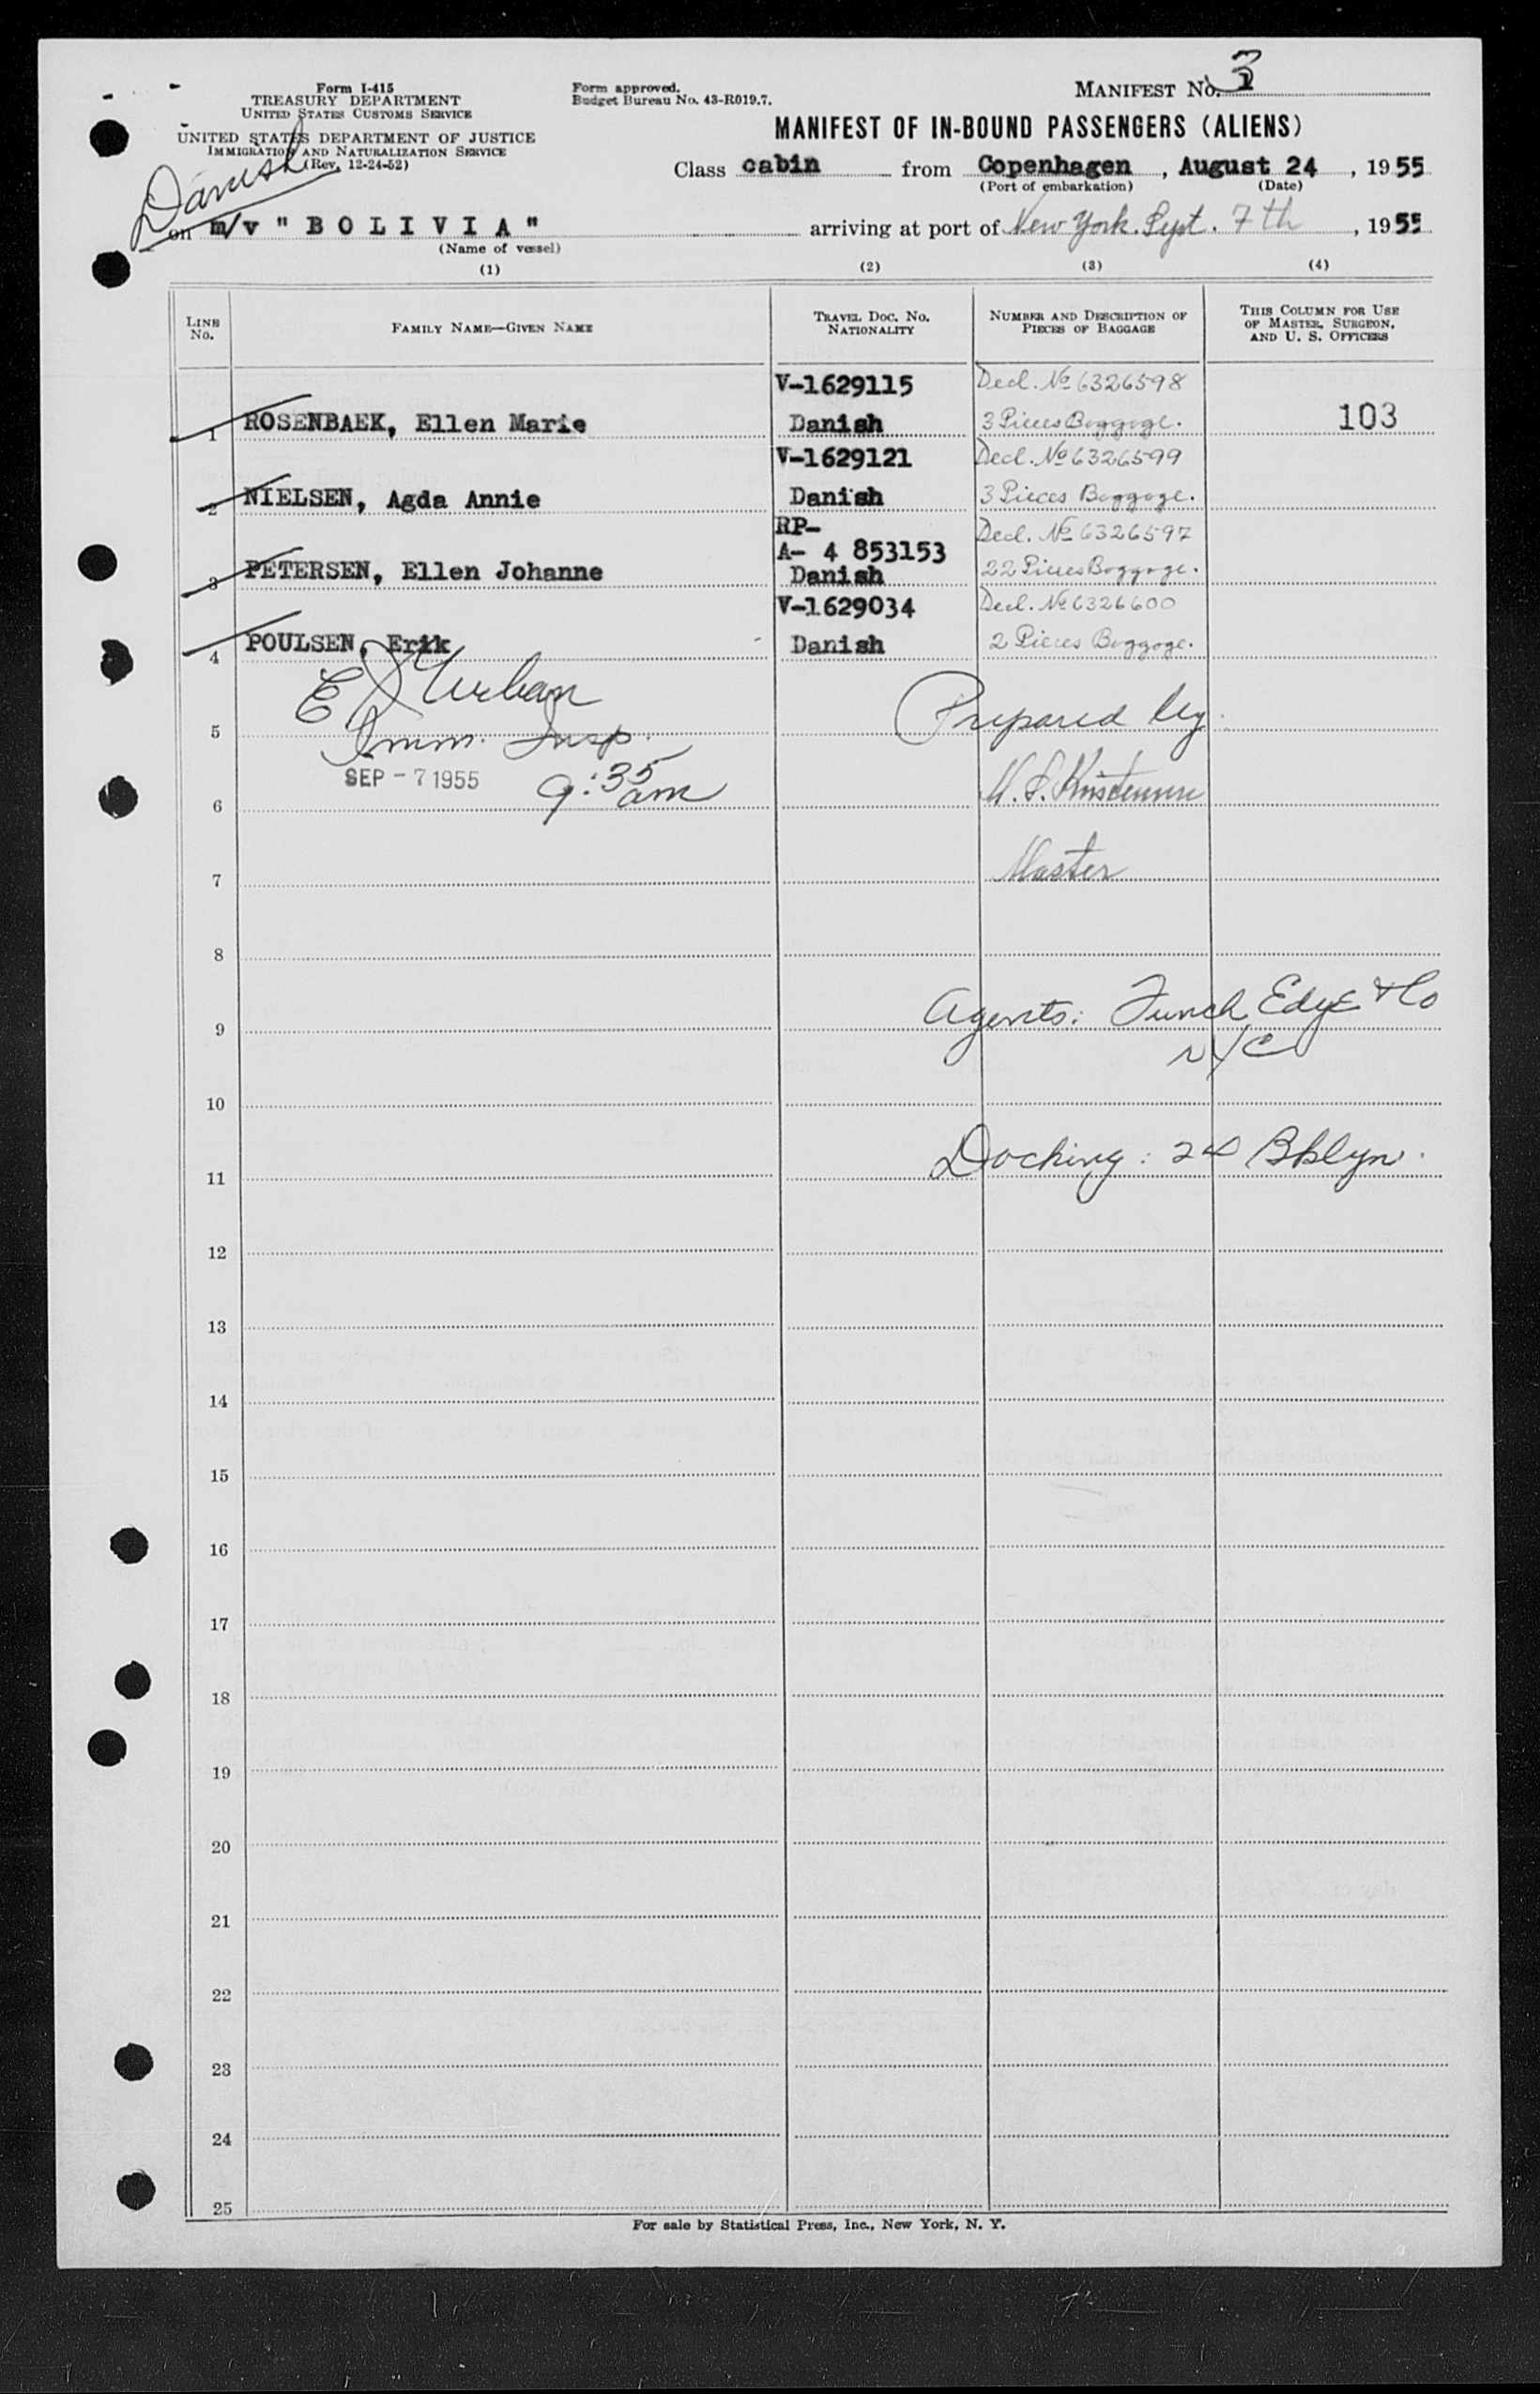 Form I-415
TREASURY DEPARTMENT
UNITED STATES CUSTOMS SERVICE
UNITED STATES DEPARTMENT OF JUSTICE
IMMIGRATION AND NATURALIZATION SERVICE
(Rev. 12-24-52)
Form approved.
Budget Bureau No. 43-R019.7.
MANIFEST No. 3
MANIFEST OF IN-BOUND PASSENGERS (ALIENS)
Class cabin from Copenhagen, August 24, 1955
(Port of embarkation) (Date)
Danish
on m/v "BOLIVIA" arriving at port of New York. Sept. 7th, 1955
(Name of vessel)
(1) (2) (3) (4)
LINE No. FAMILY NAME—GIVEN NAME TRAVEL DOC. No. NATIONALITY NUMBER AND DESCRIPTION OF PIECES OF BAGGAGE THIS COLUMN FOR USE OF MASTER, SURGEON, AND U. S. OFFICERS
V-1629115 Decl. No 6326598
1 ROSENBAEK, Ellen Marie Danish 3 Pieces Baggage. 103
V-1629121 Decl. No 6326599
2 NIELSEN, Agda Annie Danish 3 Pieces Baggage.
RP- Decl. No 6326597
A- 4 853153
3 PETERSEN, Ellen Johanne Danish 22 Pieces Baggage.
V-1629034 Decl. No 6326600
4 POULSEN, Erik Danish 2 Pieces Baggage.
E J Urban
5 Imm. Insp. Prepared by
SEP - 7 1955 9:35 am
6
7 Master
8
9 Agents: Funch Edye & Co
NYC
10
11 Docking: 24 Bklyn.
12
13
14
15
16
17
18
19
20
21
22
23
24
25
For sale by Statistical Press, Inc., New York, N. Y.